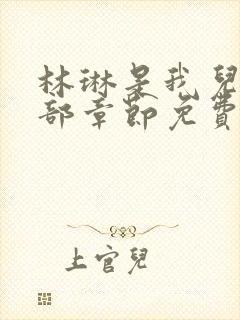 林琳是我兒
部章節免費
上官兒